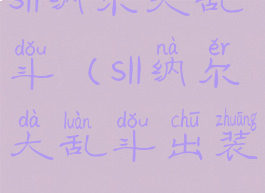 sll纳尔大乱
dǒu nà ěr
斗（sll纳尔
dà luàn dǒu chū zhuāng
大乱斗出装